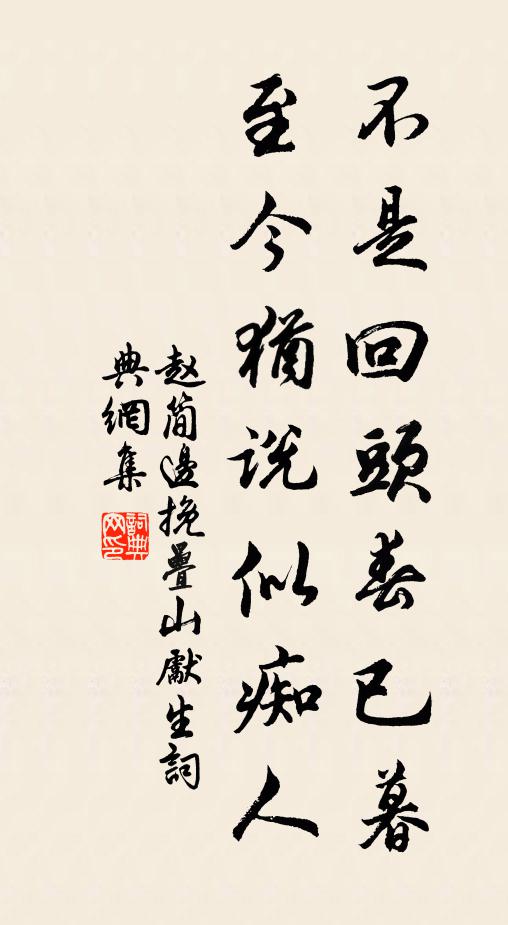 不是回頭春已暮
至今猶説似痴人
赵简邊挽疊山獻生詞
典網集
詞典
网印